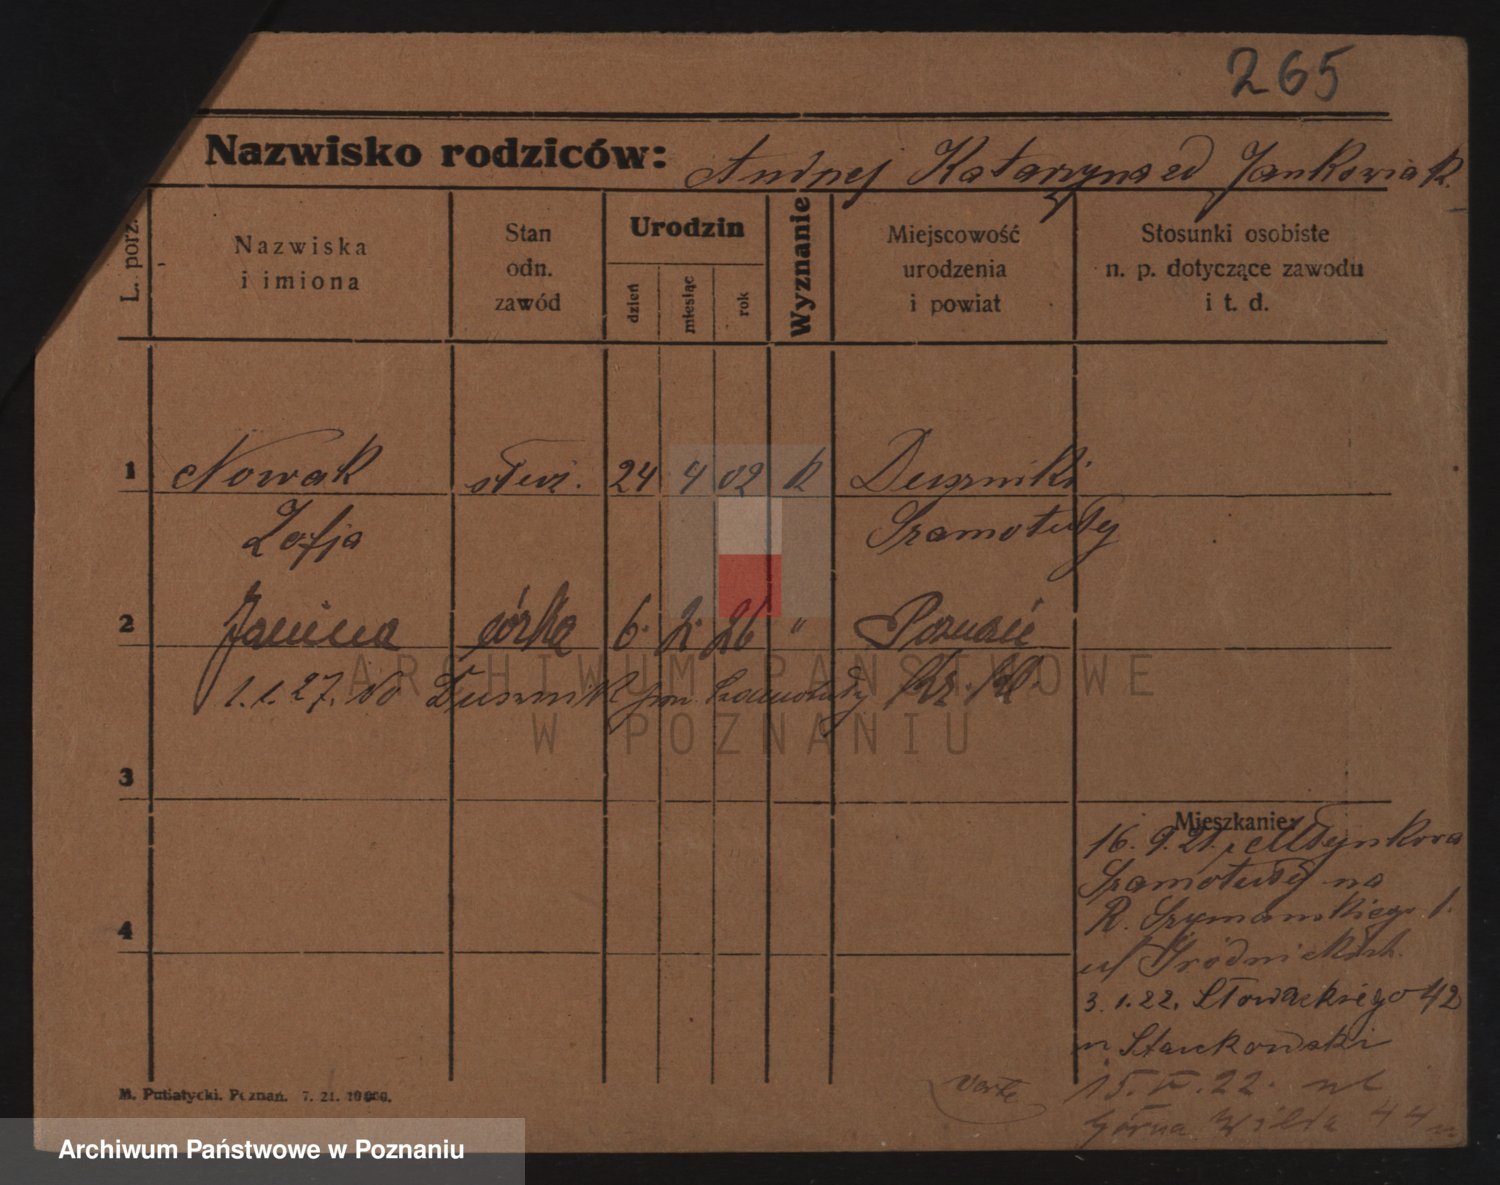 265
Nazwisko rodziców: Andrzej Katarzyna zd Jankowiak
L. porz.
Nazwiska
i imiona
Stan
odn.
zawód
Urodzin
dzień
miesiąc
rok
Wyznanie
Miejscowość
urodzenia
i powiat
Stosunki osobiste
n. p. dotyczące zawodu
i t. d.
1 Nowak służ. 24 4 02 k Duszniki
Zofja Szamotuły
2 Janina córka 6. 2. 26 " Poznań
1.1.27. do Dusznik pow. Szamotuły
ARCHIWUM PAŃSTWOWE
W POZNANIU
3
Mieszkanie:
16. 9. 21. Młynkowa
Szamotuły na
R. Szymańskiego 1.
3. 1. 22. Słowackiego 42
15. V. 22.
Górna Wilda 44
4
M. Putiatycki, Poznań. 7. 21. 10000.
Archiwum Państwowe w Poznaniu